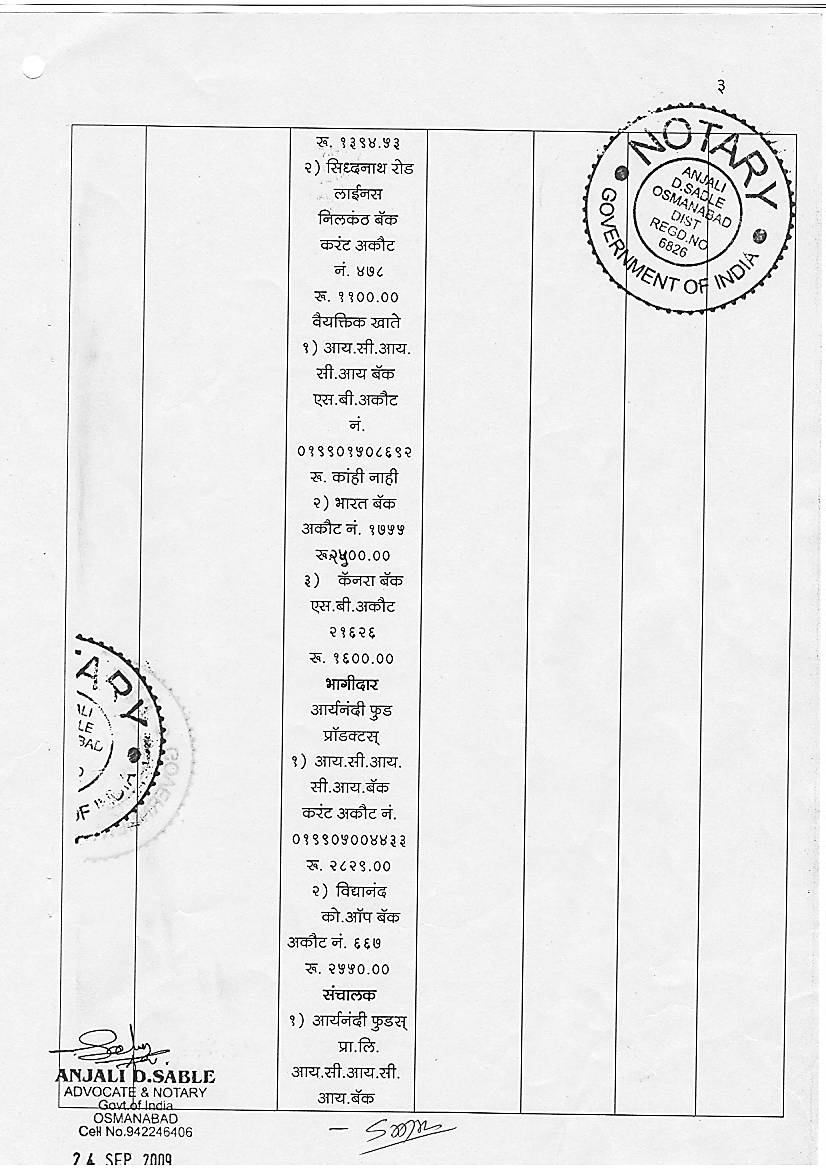 ३
रू. १३९४.५३
२) सिध्दनाथ रोड
लाईनस
निलकंठ बॅक
करंट अकौट
नं. ४७८
रू. ११००.००
वैयक्तिक खाते
१) आय.सी.आय.
सी.आय बॅक
एस.बी.अकौट
नं.
०१९९०१५०८६९२
रू. कांही नाही
२) भारत बॅक
अकौट नं. १७५५
रू.२५००.००
३) कॅनरा बॅक
एस.बी.अकौट
२१६२६
रू. १६००.००
भागीदार
आर्यनंदी फुड
प्रॉडक्टस्
१) आय.सी.आय.
सी.आय.बॅक
करंट अकौट नं.
०१९९०५००४४३३
रू. २८२९.००
२) विद्यानंद
को.ऑप बॅक
अकौट नं. ६६७
रू. २५५०.००
संचालक
१) आर्यनंदी फुडस्
प्रा.लि.
आय.सी.आय.सी.
आय.बॅक
NOTARY
GOVERNMENT OF INDIA
ANJALI
D.SABLE
OSMANABAD
DIST
REGD.NO
6826
TARY
OF INDIA
ALI
LE
BAD
ANJALI D.SABLE
ADVOCATE & NOTARY
Govt.of India
OSMANABAD
Cell No.942246406
24 SEP 2009